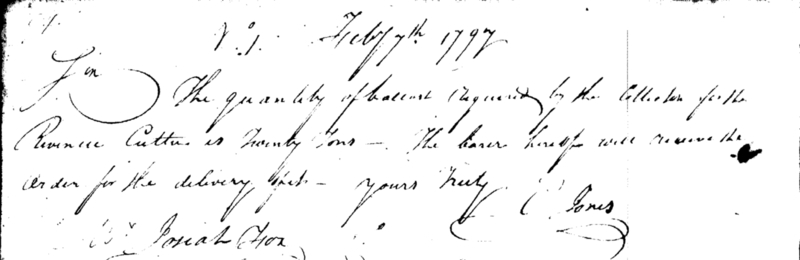 No. 1. Feby 7th 1797
Sir
The quantity of ballast required by the Collector for the
Revenue Cutter is Twenty Tons — The bearer hereof will receive the
order for the delivery of it — yours truly
E Jones
Josiah Fox